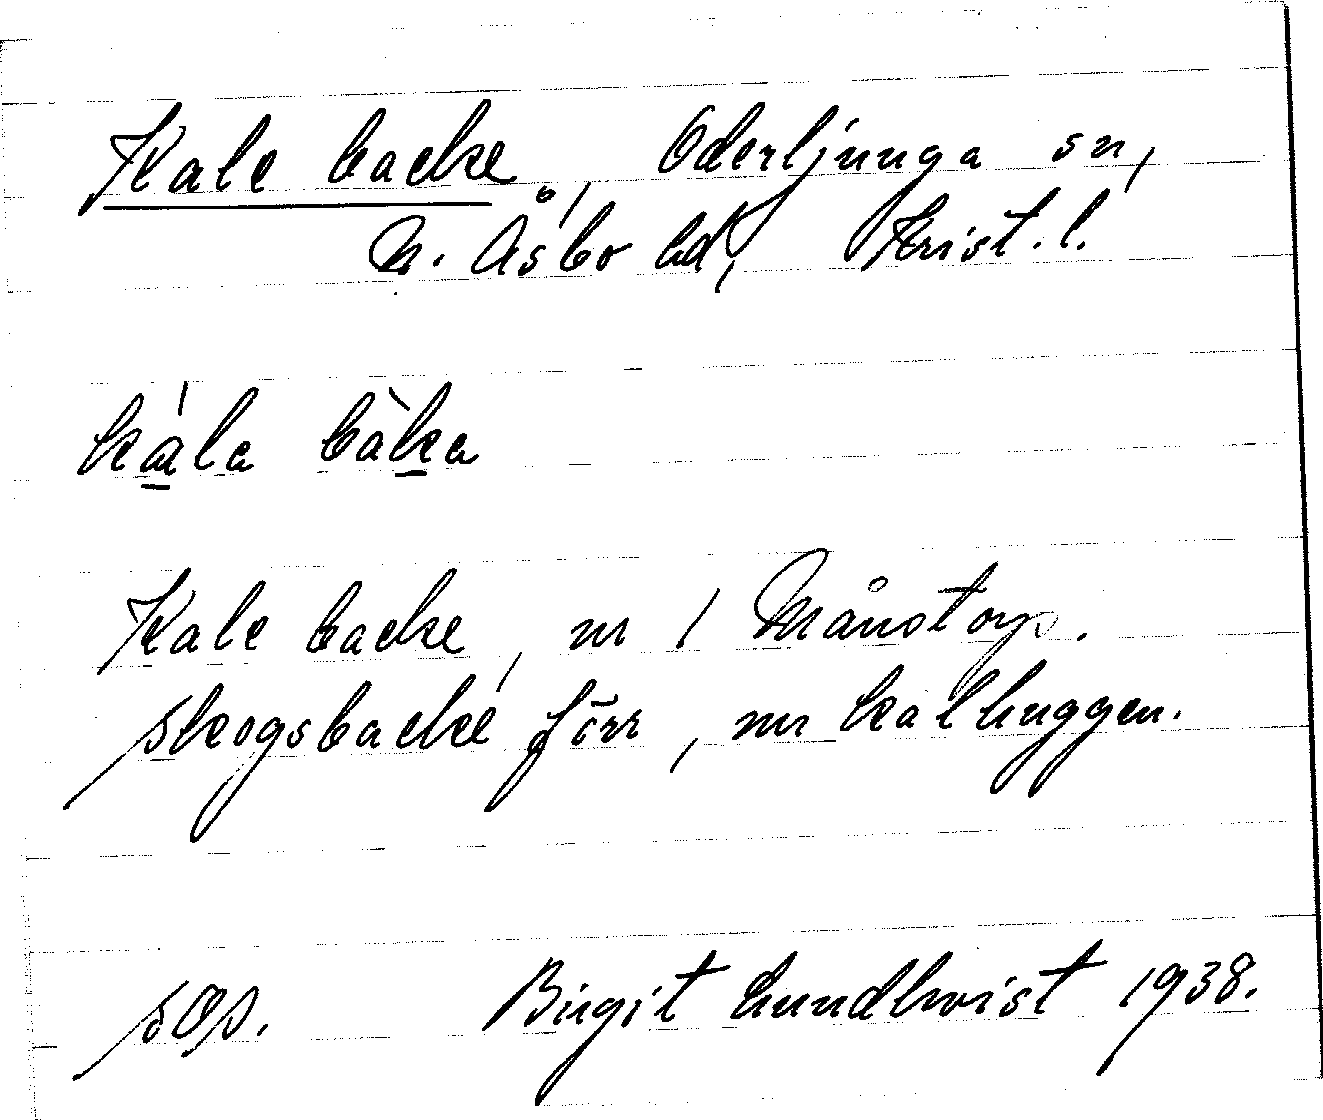 Kale backe, Oderljunga sn,
N. Åsbo hd, Krist. l.
ká̱la bàḵa
Kale backe, nr 1 Månstorp.
skogsbacke förr, nu kalhuggen.
sOp. Birgit Lundkvist 1938.